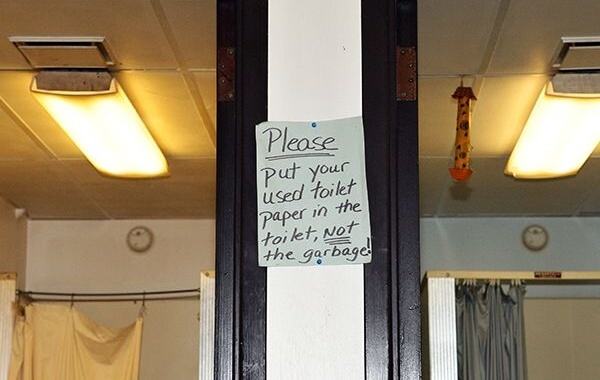 Please
put your
used toilet
paper in the
toilet, NOT
the garbage!